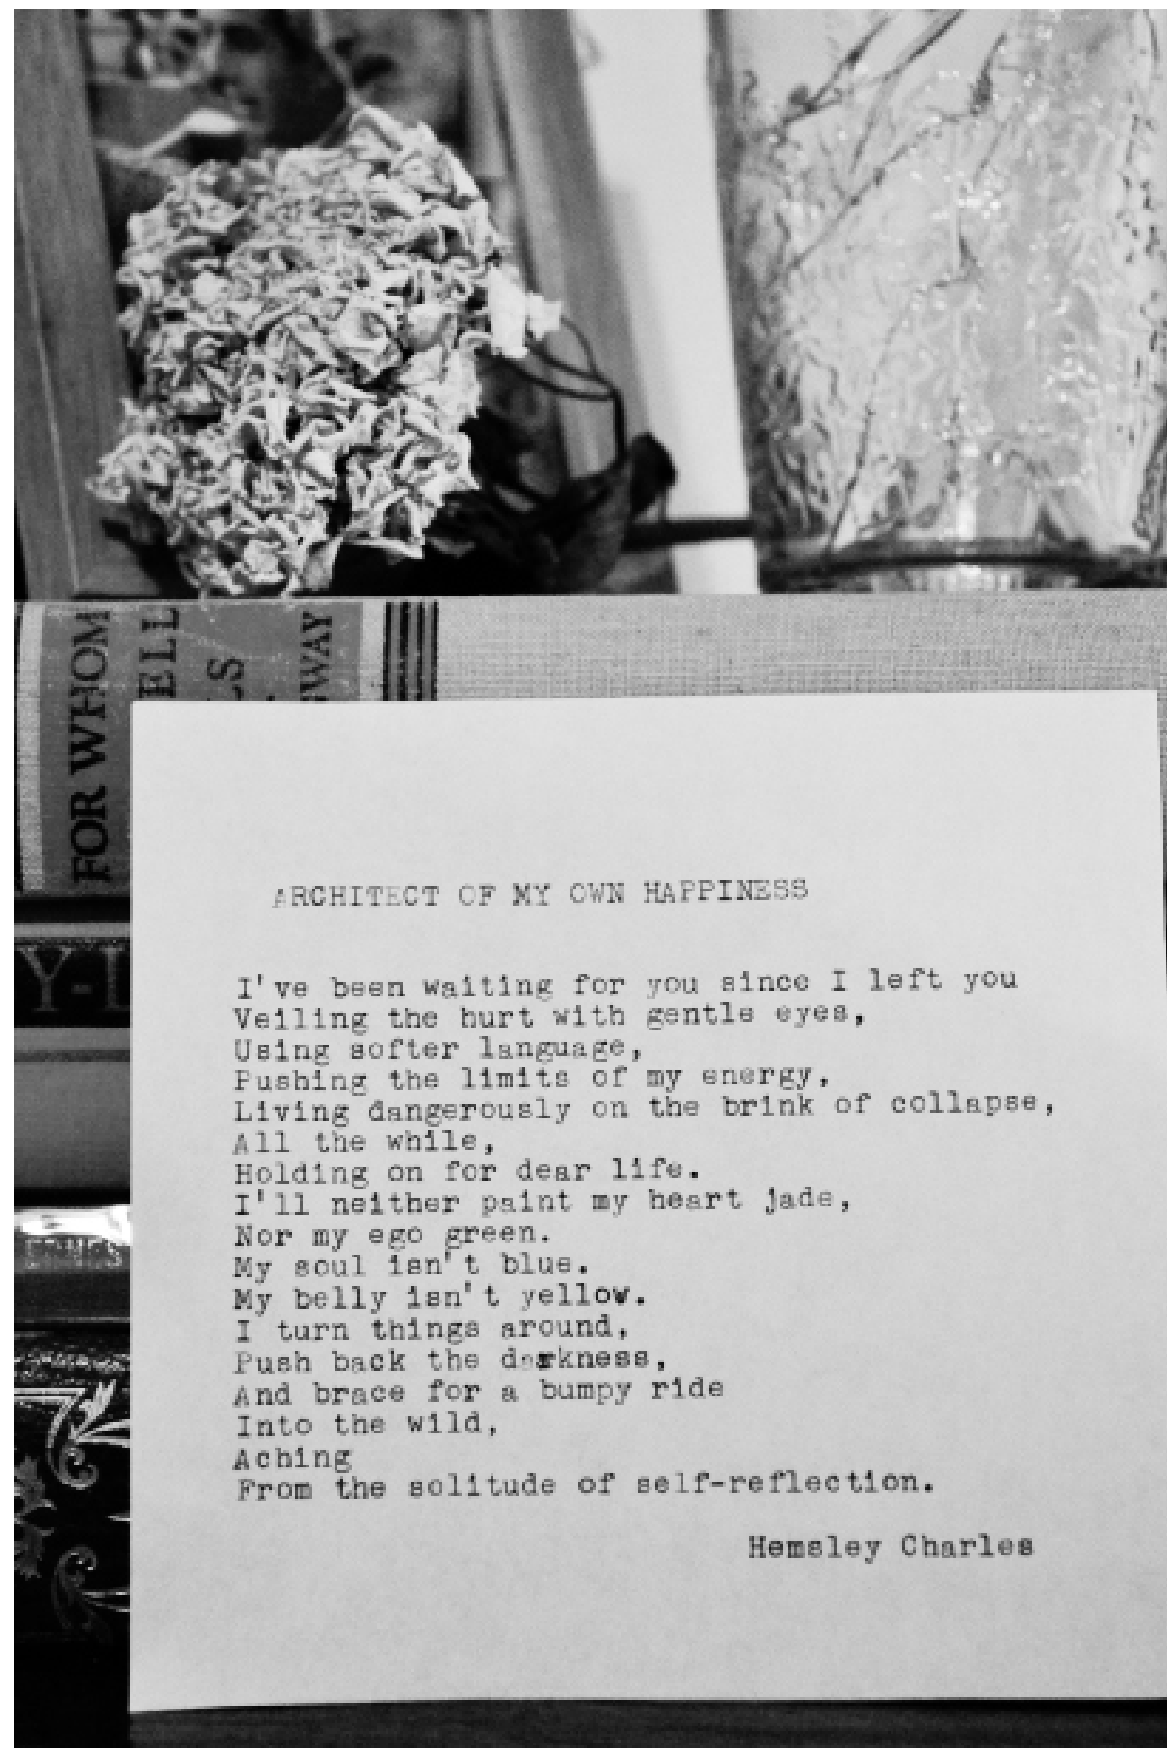 FOR WHOM
ELL
LS
GWAY
Y-L
ARCHITECT OF MY OWN HAPPINESS
I've been waiting for you since I left you
Veiling the hurt with gentle eyes,
Using softer language,
Pushing the limits of my energy,
Living dangerously on the brink of collapse,
All the while,
Holding on for dear life.
I'll neither paint my heart jade,
Nor my ego green.
My soul isn't blue.
My belly isn't yellow.
I turn things around,
Push back the darkness,
And brace for a bumpy ride
Into the wild,
Aching
From the solitude of self-reflection.
Hemsley Charles